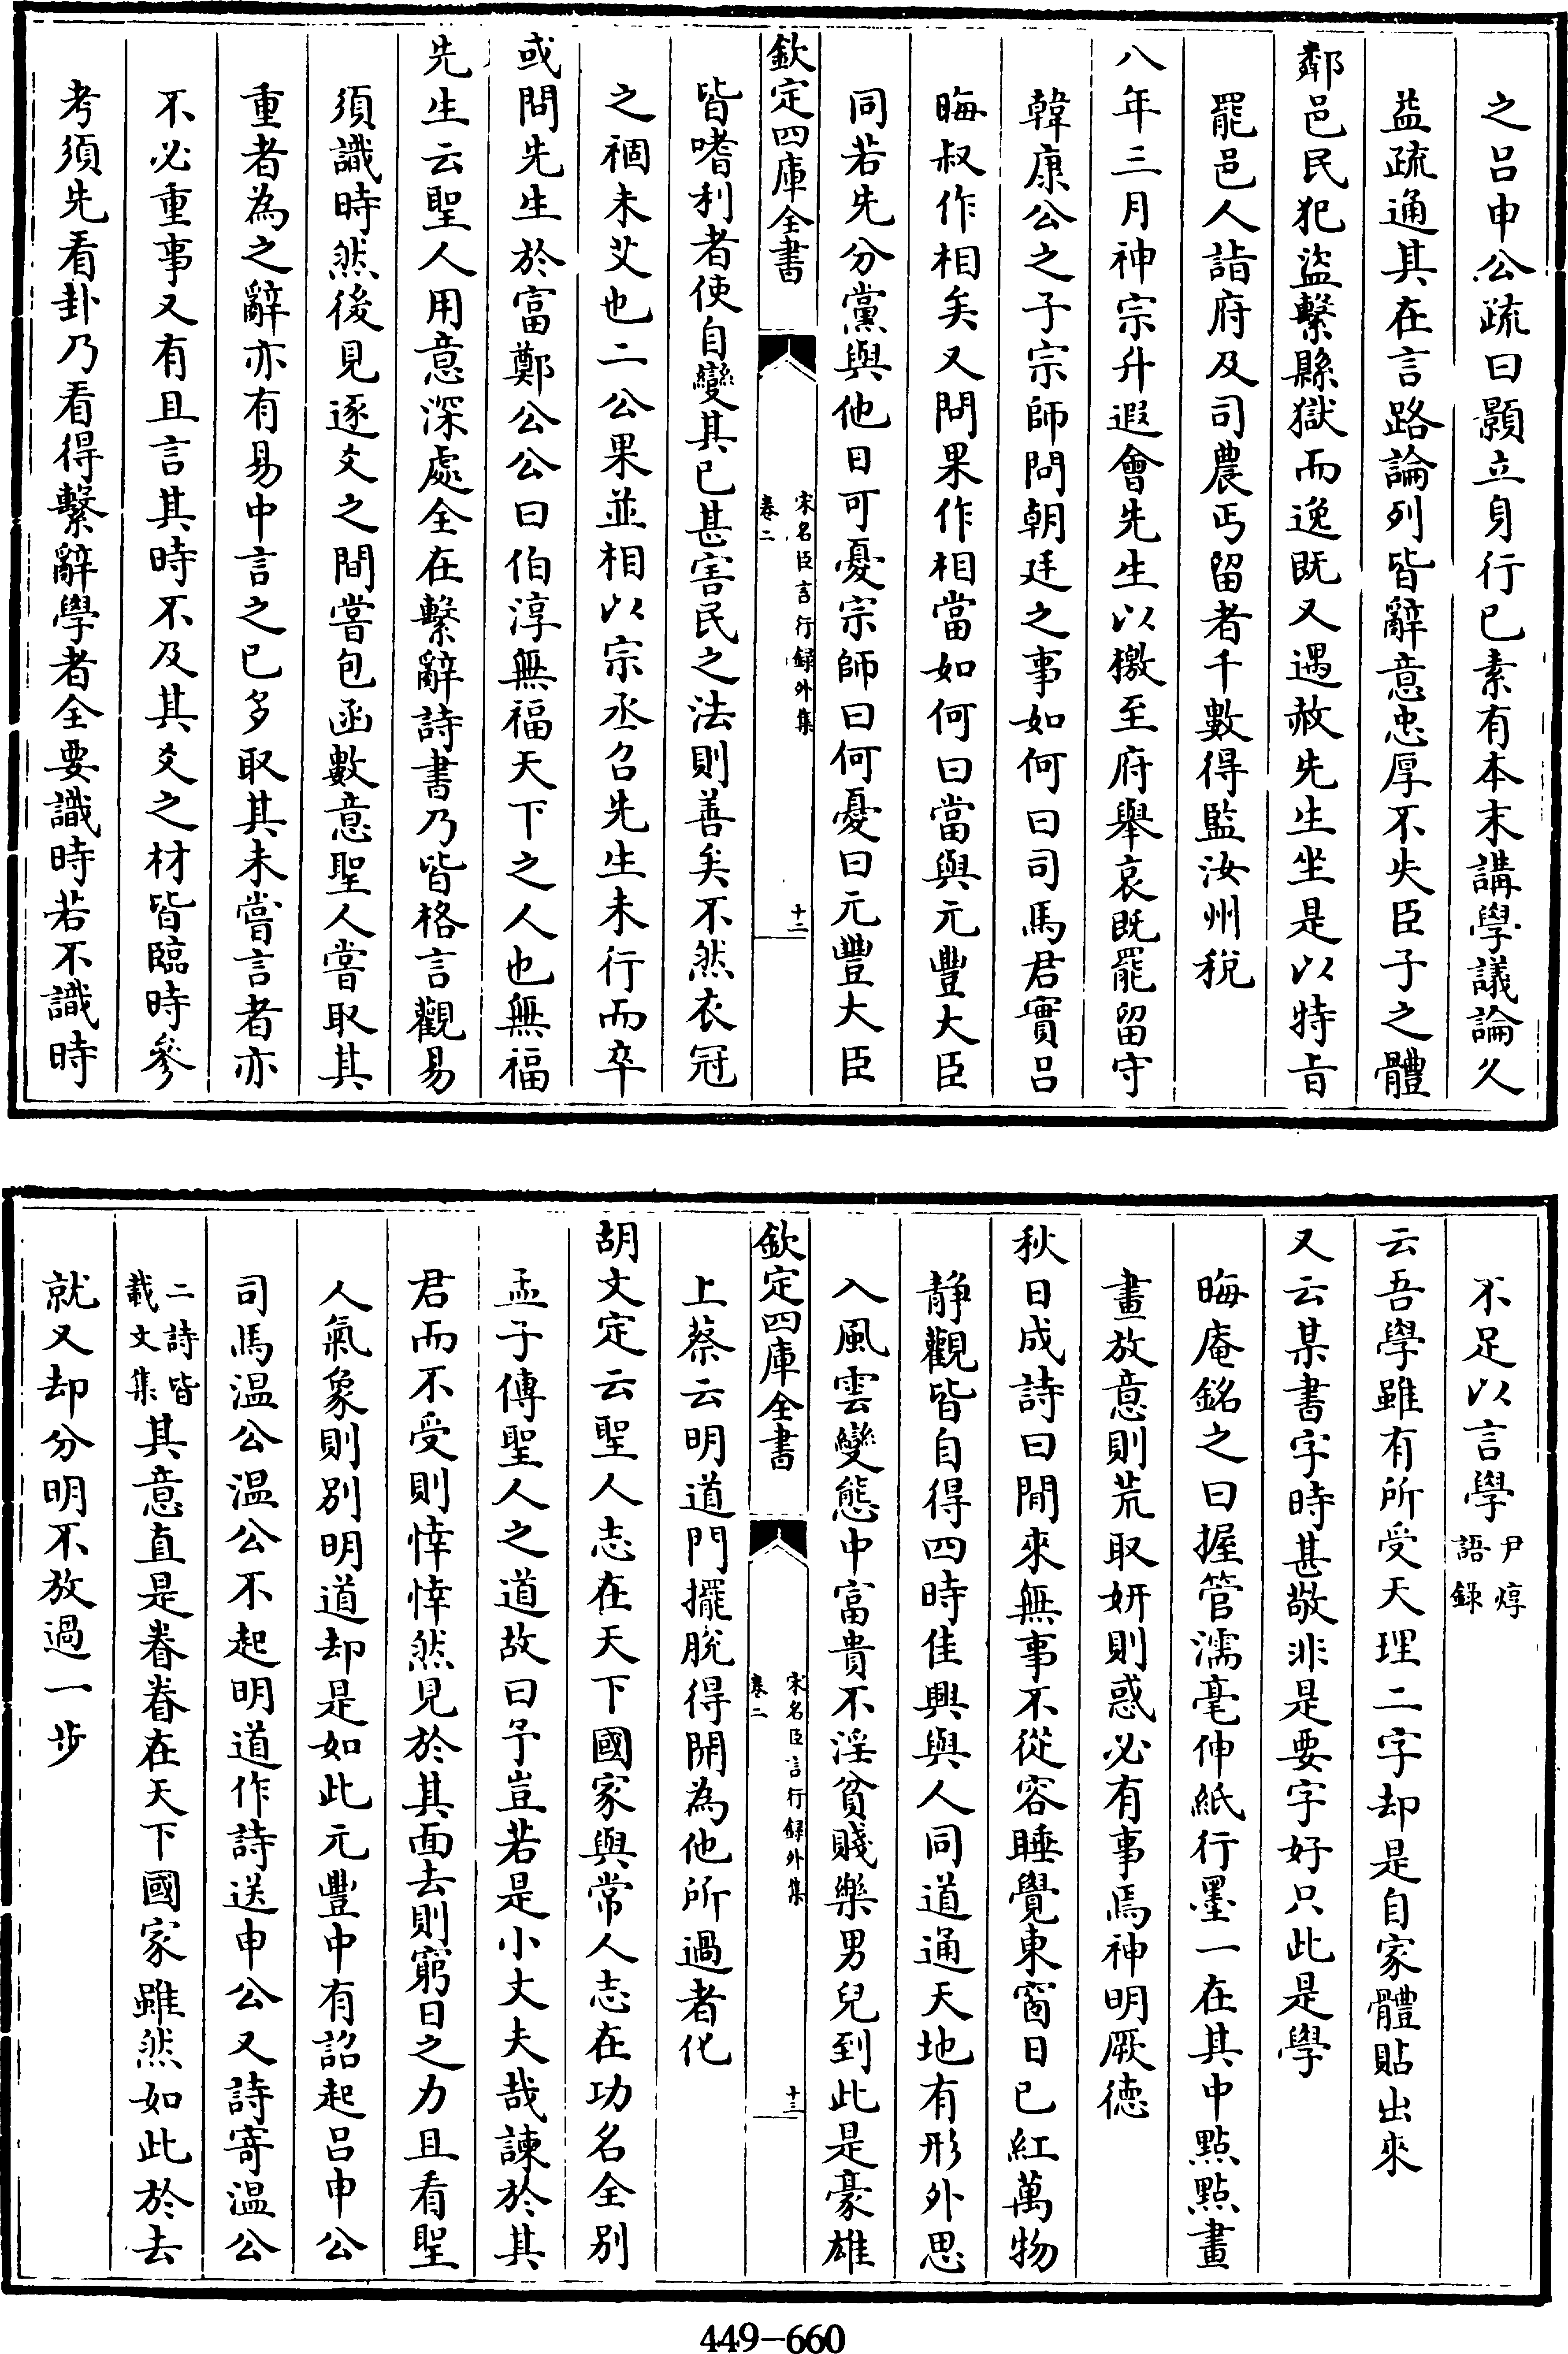 之呂申公疏曰顥立身行已素有本末講學議論久
益疏通其在言路論列皆辭意忠厚不失臣子之體
鄰邑民犯盜繫縣獄而逸既又遇赦先生坐是以特旨
罷邑人詣府及司農丐留者千數得監汝州稅
八年三月神宗升遐會先生以檄至府舉哀既罷留守
韓康公之子宗師問朝廷之事如何曰司馬君實呂
晦叔作相矣又問果作相當如何曰當與元豐大臣
同若先分黨與他日可憂宗師曰何憂曰元豐大臣
欽定四庫全書
宋名臣言行録外集
卷二
十二
皆嗜利者使自變其已甚害民之法則善矣不然衣冠
之禍未艾也二公果並相以宗丞召先生未行而卒
或問先生於富鄭公公曰伯淳無福天下之人也無福
先生云聖人用意深處全在繫辭詩書乃皆格言觀易
須識時然後見逐爻之間嘗包函數意聖人嘗取其
重者為之辭亦有易中言之已多取其未嘗言者亦
不必重事又有且言其時不及其爻之材皆臨時參
考須先看卦乃看得繫辭學者全要識時若不識時
不足以言學尹焞
語録
云吾學雖有所受天理二字却是自家體貼出來
又云某書字時甚敬非是要字好只此是學
晦庵銘之曰握管濡毫伸紙行墨一在其中點點畫
畫放意則荒取妍則惑必有事焉神明厥德
秋日成詩曰閒來無事不從容睡覺東窗日已紅萬物
靜觀皆自得四時佳興與人同道通天地有形外思
入風雲變態中富貴不淫貧賤樂男兒到此是豪雄
欽定四庫全書
宋名臣言行録外集
卷二
十三
上蔡云明道門擺脫得開為他所過者化
胡文定云聖人志在天下國家與常人志在功名全別
孟子傳聖人之道故曰予豈若是小丈夫哉諫於其
君而不受則悻悻然見於其面去則窮日之力且看聖
人氣象則別明道却是如此元豐中有詔起呂申公
司馬温公温公不起明道作詩送申公又詩寄温公
二詩皆
載文集其意直是眷眷在天下國家雖然如此於去
就又却分明不放過一步
449-660